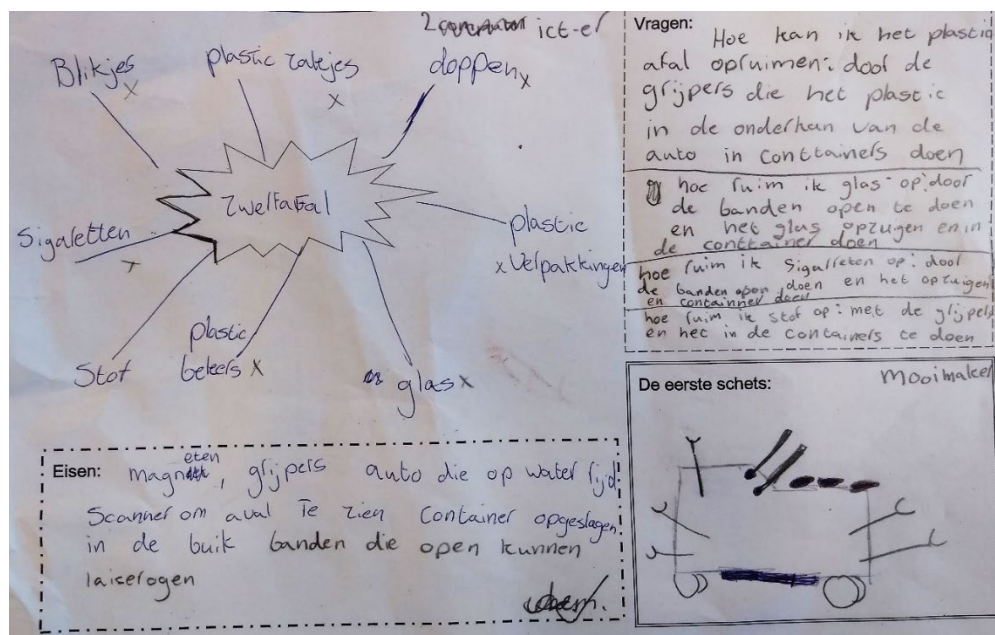 ict-er
Blikjes x
plastic zakjes x
doppen x
zwelfafal
Sigaretten x
plastic
x verpakkingen
Stof
plastic
bekers x
glas x
Vragen:
Hoe kan ik het plastic
afal opruimen: door de
grijpers die het plastic
in de onderkan van de
auto in conttainers doen
hoe ruim ik glas op: door
de banden open te doen
en het glas opzugen en in
de conttainer doen
hoe ruim ik sigarreten op: door
de banden open doen en het opzuigen
en containner doen
hoe ruim ik stof op: met de grijpers
en het in de containers te doen
Eisen: magneten, grijpers auto die op water rijd.
Scanner om aval Te zien Container opgeslagen
in de buik banden die open kunnen
laiserogen
De eerste schets:
Mooimaker